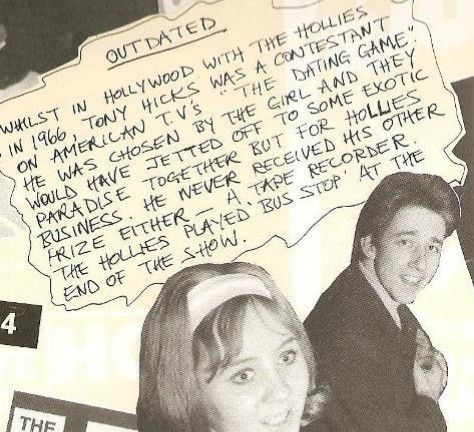 OUTDATED
WHILST IN HOLLYWOOD WITH THE HOLLIES
IN 1966, TONY HICKS WAS A CONTESTANT
ON AMERICAN T.V'S "THE DATING GAME"
HE WAS CHOSEN BY THE GIRL AND THEY
WOULD HAVE JETTED OFF TO SOME EXOTIC
PARADISE TOGETHER BUT FOR HOLLIES
BUSINESS. HE NEVER RECEIVED HIS OTHER
PRIZE EITHER – A TAPE RECORDER.
THE HOLLIES PLAYED 'BUS STOP' AT THE
END OF THE SHOW.
4
THE